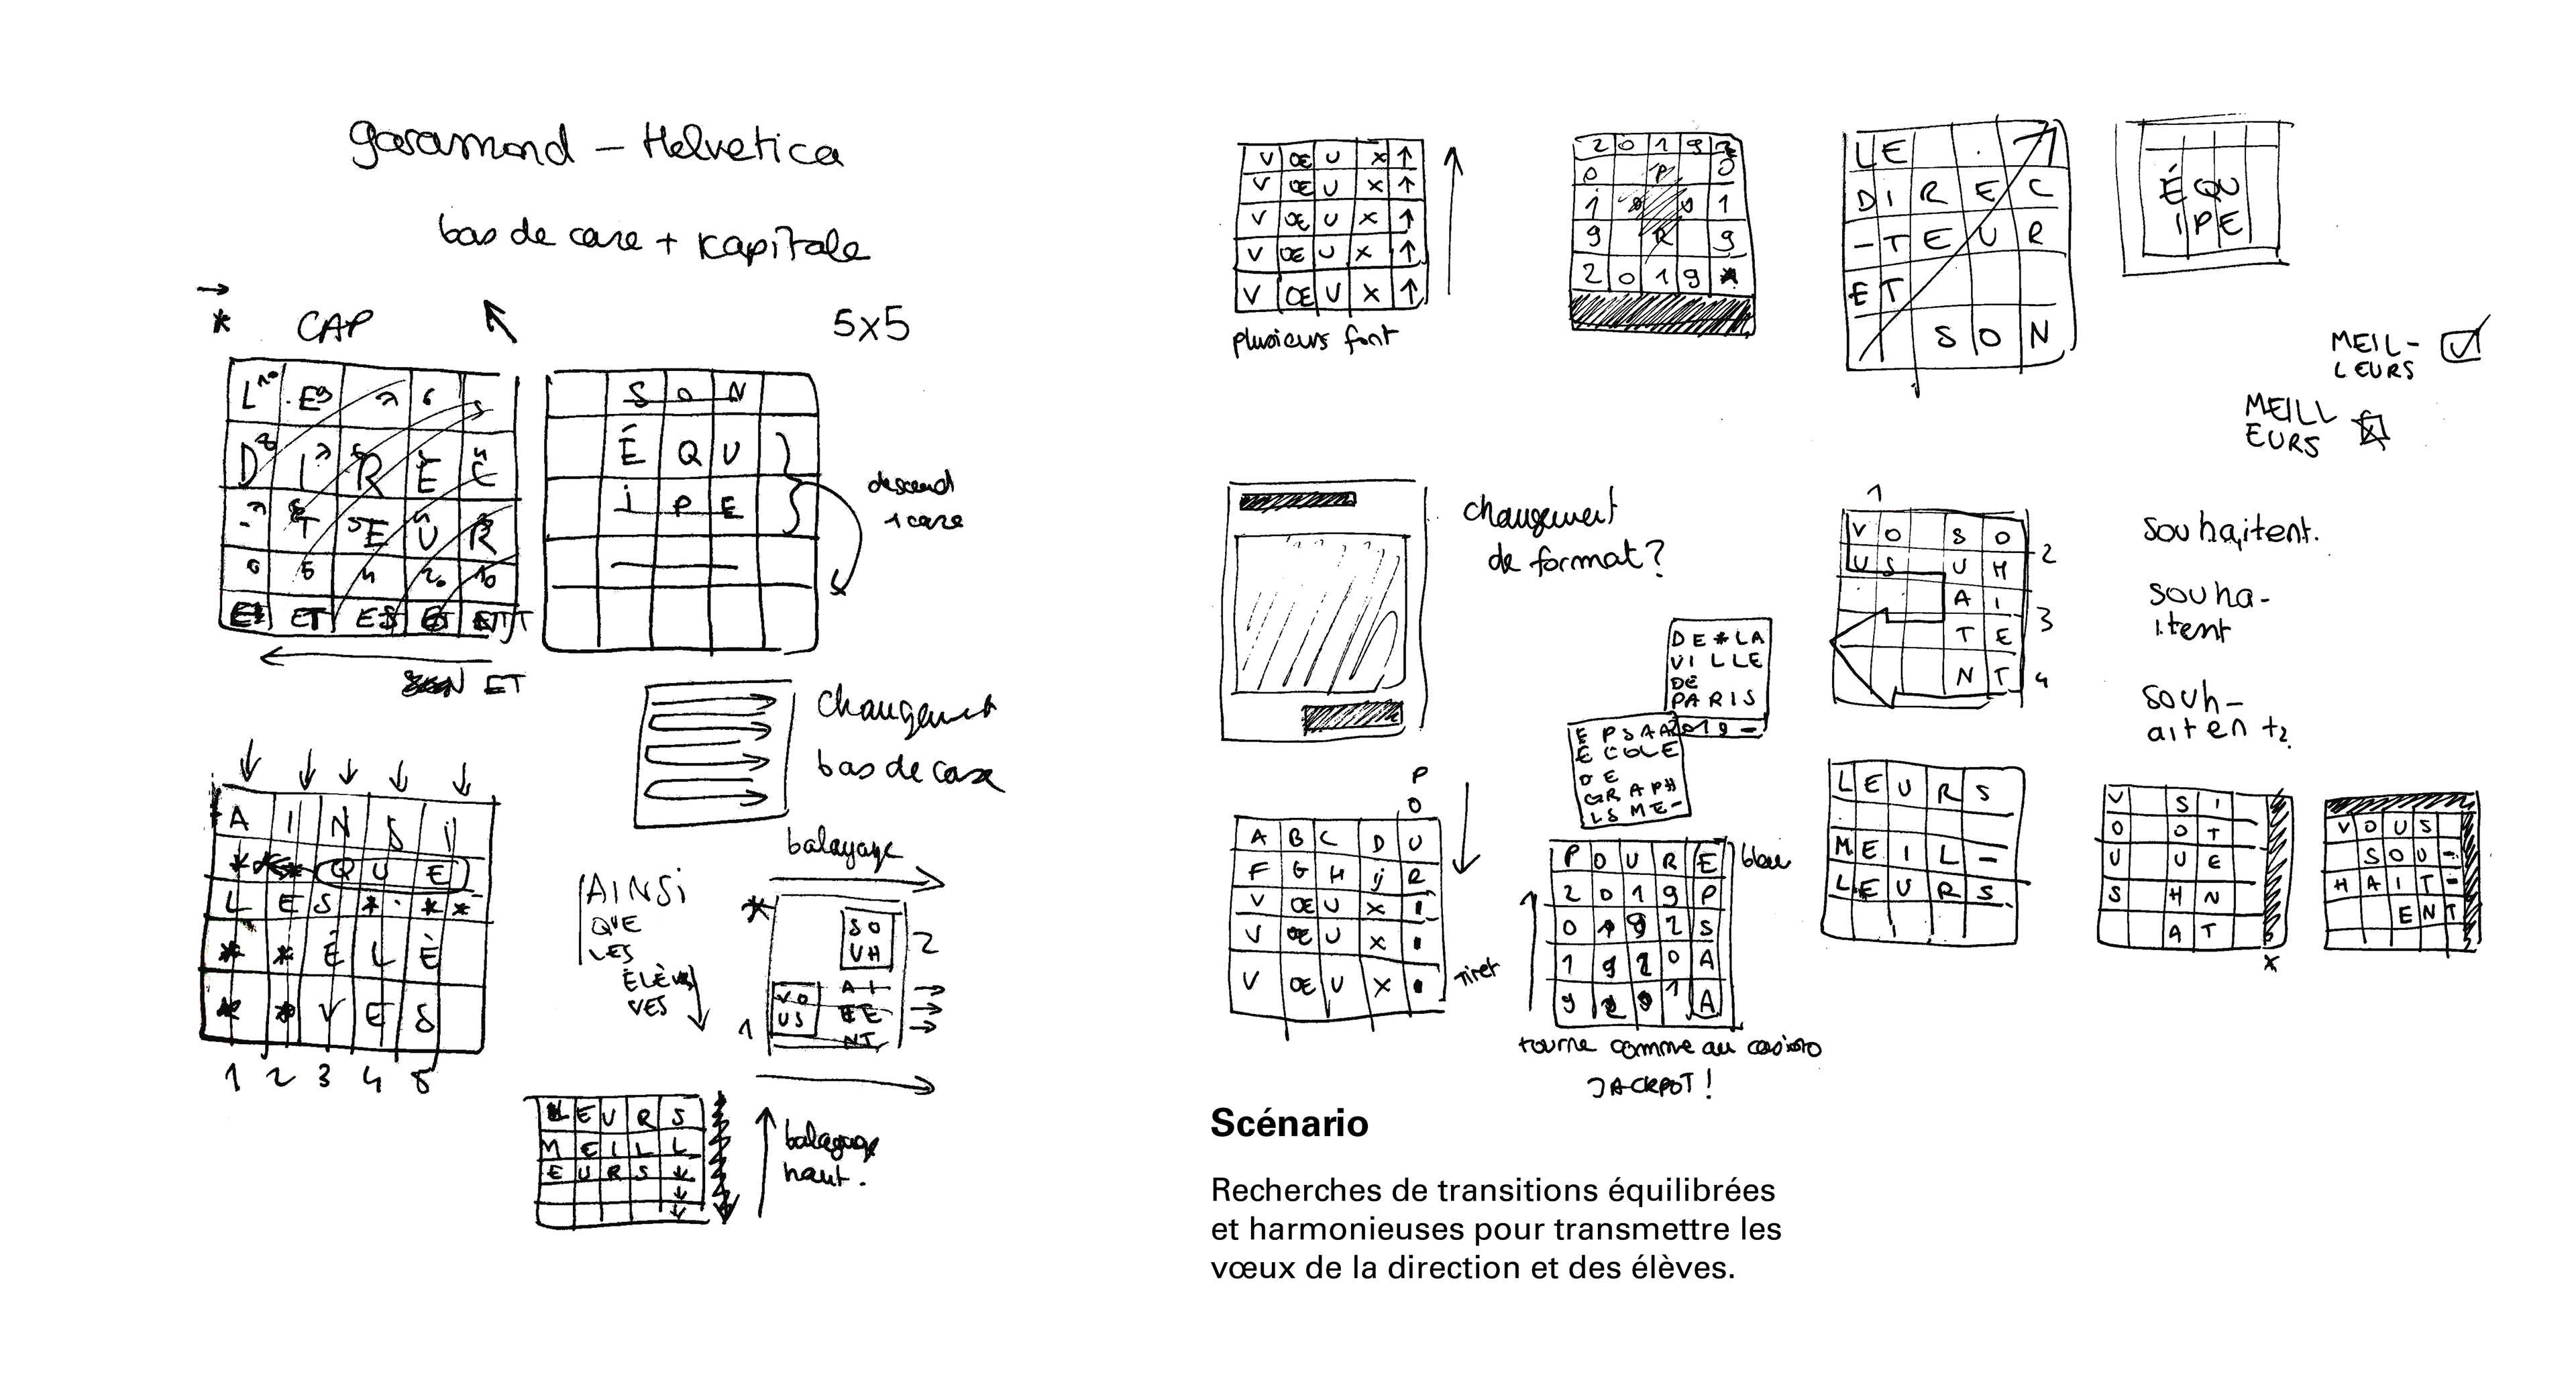 garamond – Helvetica
bas de casse + Kapitale
*
CAP
5x5
L E
D I R E C
- T E U R
ET ET ET ET ET
ET
S O N
É Q U
i P E
descend
1 case
changement
bas de casse
A I N S i
* * Q U E
L E S * * *
* * É L È
* * V E S
1 2 3 4 5
AINSi
QUE
LES
ÉLÈ
VES
balayage
*
SO
UH
2
VO
US
AI
TE
NT
1
L E U R S
M E I L L
E U R S ↓
↓
↓
balayage
haut.
V OE U X ↑
V OE U X ↑
V OE U X ↑
V OE U X ↑
V OE U X ↑
plusieurs font
2 0 1 9 2
0 P 0
1 O U 1
9 R 9
2 0 1 9 *
LE
D I R E C
- T E U R
E T
S O N
É QU
I P E
MEIL-
LEURS
MEILL
EURS
changement
de format?
1
V O S O
U S U H
A I
T E
N T
2
3
4
souhaitent.
souha-
itent
souh-
aitent
DE*LA
VILLE
DE
PARIS
2019-
EPSAA
ÉCOLE
DE
GRAPH
ISME-
P
O
A B C D U
F G H ij R
V OE U X
V OE U X
V OE U X
Tiret
P O U R E
2 0 1 9 P
0 1 9 2 S
1 9 2 0 A
9 2 0 1 A
bleu
tourne comme au casino
JACKPOT!
L E U R S
M E I L -
L E U R S
V S I
O O T
U U E
S H N
A T
x
V O U S
S O U -
H A I T -
E N T
Scénario
Recherches de transitions équilibrées
et harmonieuses pour transmettre les
vœux de la direction et des élèves.